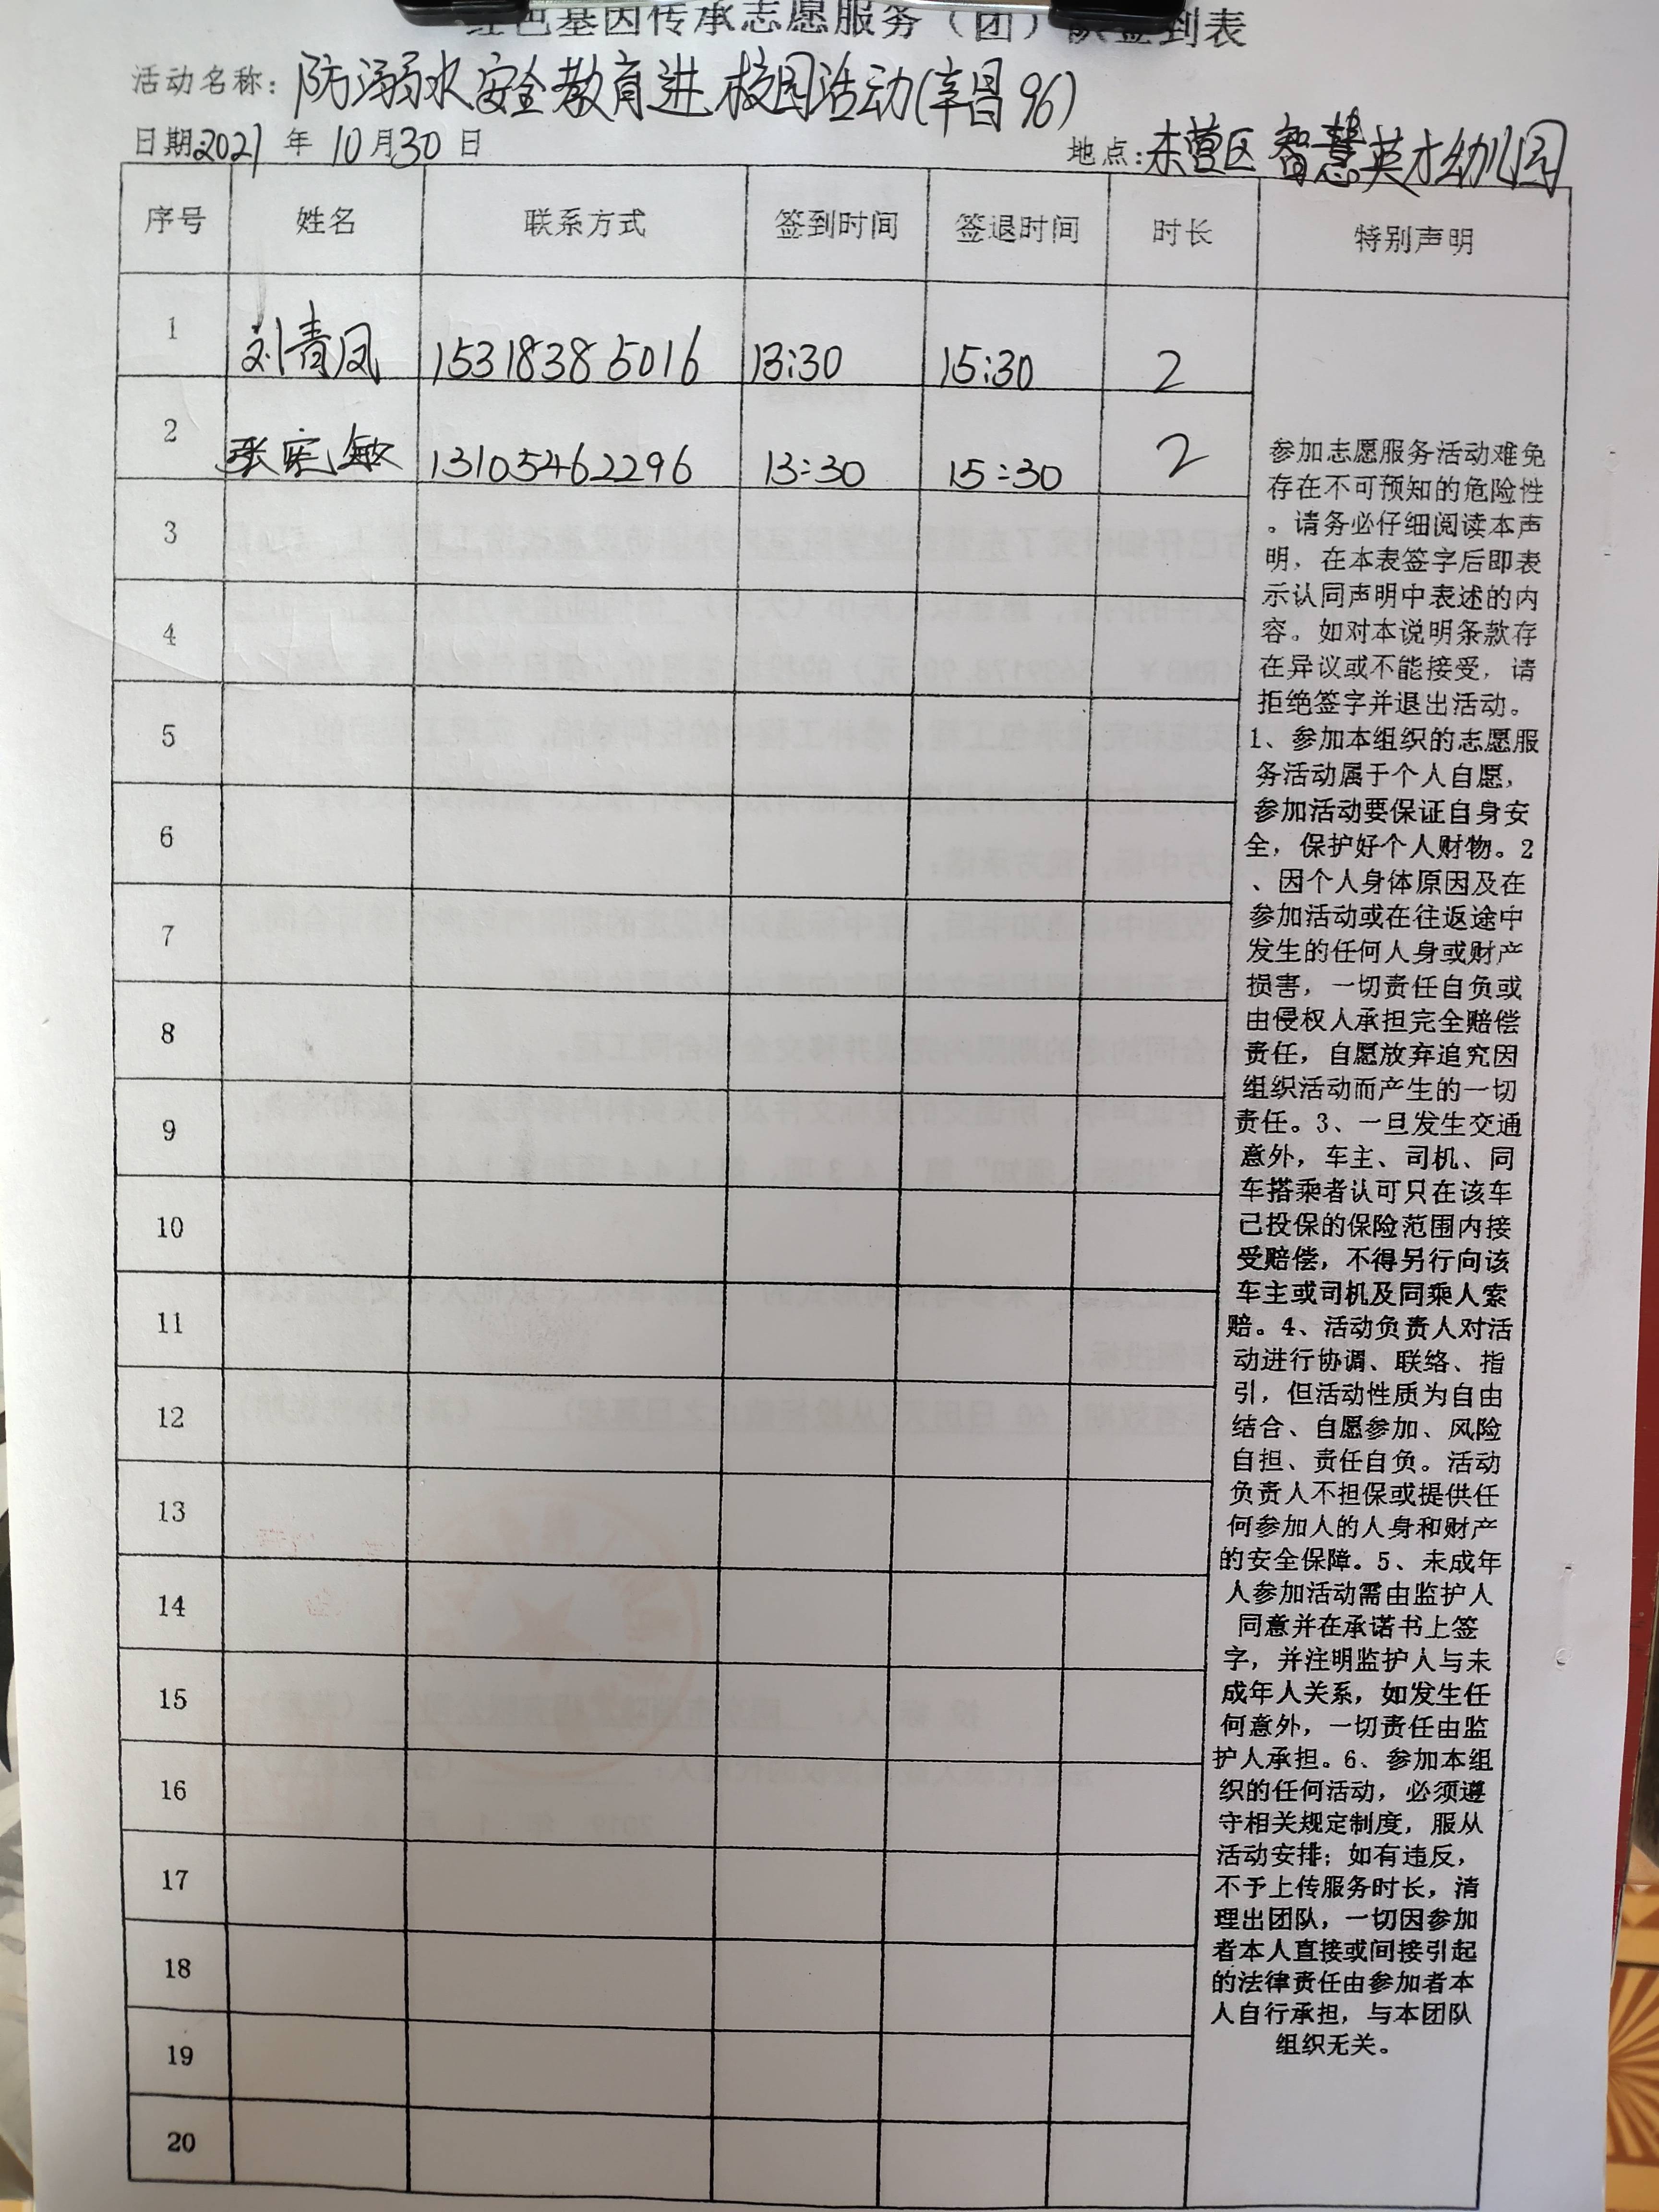 红色基因传承志愿服务（团）队签到表
活动名称：防溺水安全教育进校园活动(辛昌96)
日期2021年10月30日 地点：东营区智慧英才幼儿园
序号 姓名 联系方式 签到时间 签退时间 时长 特别声明
1 刘青凤 15318385016 13:30 15:30 2
2 张宪敏 13105462296 13:30 15:30 2
3
4
5
6
7
8
9
10
11
12
13
14
15
16
17
18
19
20
参加志愿服务活动难免
存在不可预知的危险性
。请务必仔细阅读本声
明，在本表签字后即表
示认同声明中表述的内
容。如对本说明条款存
在异议或不能接受，请
拒绝签字并退出活动。
1、参加本组织的志愿服
务活动属于个人自愿，
参加活动要保证自身安
全，保护好个人财物。2
、因个人身体原因及在
参加活动或在往返途中
发生的任何人身或财产
损害，一切责任自负或
由侵权人承担完全赔偿
责任，自愿放弃追究因
组织活动而产生的一切
责任。3、一旦发生交通
意外，车主、司机、同
车搭乘者认可只在该车
已投保的保险范围内接
受赔偿，不得另行向该
车主或司机及同乘人索
赔。4、活动负责人对活
动进行协调、联络、指
引，但活动性质为自由
结合、自愿参加、风险
自担、责任自负。活动
负责人不担保或提供任
何参加人的人身和财产
的安全保障。5、未成年
人参加活动需由监护人
同意并在承诺书上签
字，并注明监护人与未
成年人关系，如发生任
何意外，一切责任由监
护人承担。6、参加本组
织的任何活动，必须遵
守相关规定制度，服从
活动安排；如有违反，
不予上传服务时长，清
理出团队，一切因参加
者本人直接或间接引起
的法律责任由参加者本
人自行承担，与本团队
组织无关。